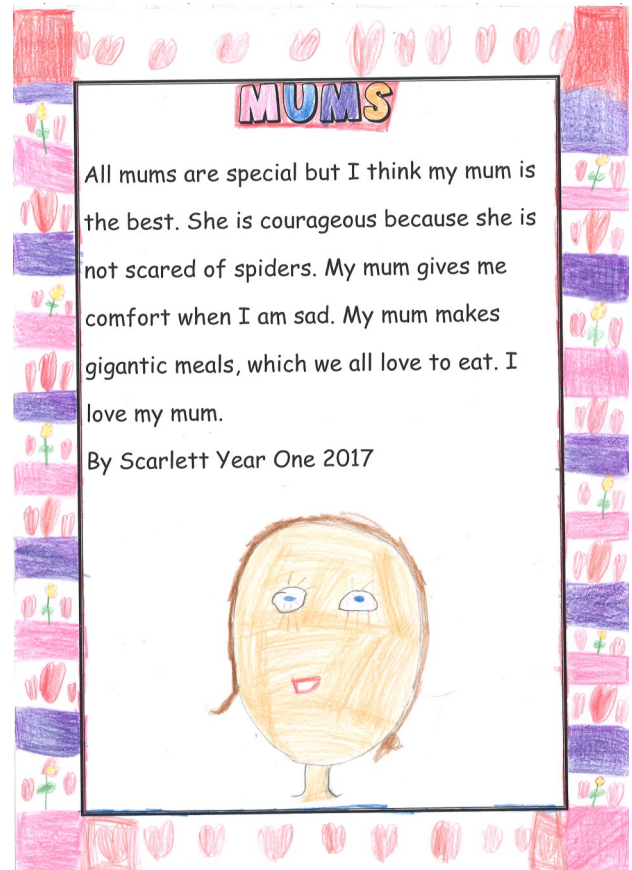 MUMS
All mums are special but I think my mum is
the best. She is courageous because she is
not scared of spiders. My mum gives me
comfort when I am sad. My mum makes
gigantic meals, which we all love to eat. I
love my mum.
By Scarlett Year One 2017